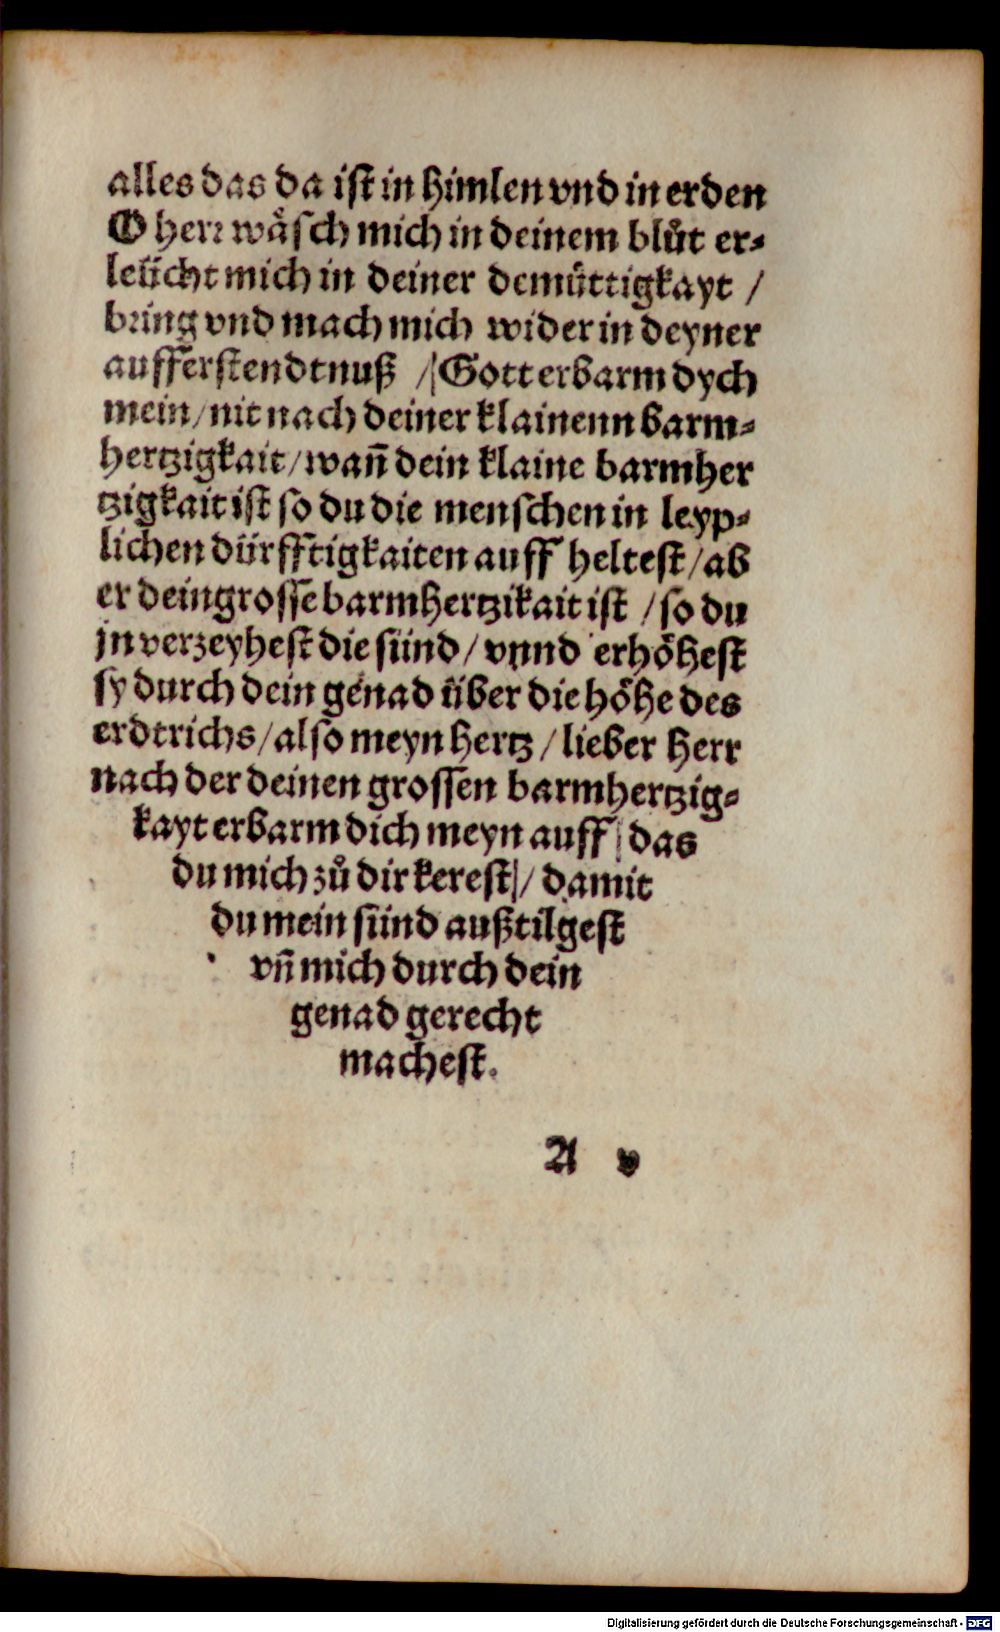 alles das da ist in himlen vnd in erden
O herr wåsch mich in deinem blůt er-
leücht mich in deiner demüttigkayt /
bring vnd mach mich wider in deyner
aufferstendtnuß / Gott erbarm dych
mein / nit nach deiner klainenn barm-
hertzigkait / wañ dein klaine barmher
tzigkait ist so du die menschen in leyp-
lichen dürfftigkaiten auff heltest / ab
er dein grosse barmhertzikait ist / so du
jn verzeyhest die sünd / vnnd erhöhest
sy durch dein genad über die höhe des
erdtrichs / also meyn hertz / lieber herr
nach der deinen grossen barmhertzig-
kayt erbarm dich meyn auff / das
du mich zů dir kerest / damit
du mein sünd außtilgest
vñ mich durch dein
genad gerecht
machest.
A v
Digitalisierung gefördert durch die Deutsche Forschungsgemeinschaft - DFG